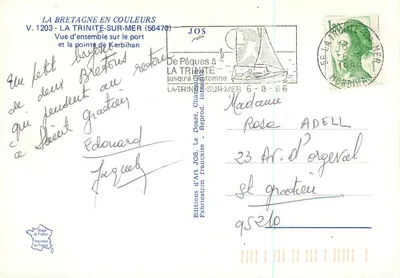 LA BRETAGNE EN COULEURS
V. 1203 - LA TRINITÉ-SUR-MER (56470)
Vue d'ensemble sur le port
et la pointe de Kerbihan
Un petit bonjour
de deux Bretons
qui pensent au retour
à Saint Gratien
Edouard
Jacquelin
JOS
Editions d'Art JOS Le Doaré, Châteaulin
Fabrication française - Reprod. interdite
De Pâques à
LA TRINITÉ
jusqu'à l'automne
LA TRINITE-SUR-MER 6-8-86
56 LA TRINITE MER
MORBIHAN
Madame
Rosa ADELL
23 Av. d'Orgeval
St Gratien
95210